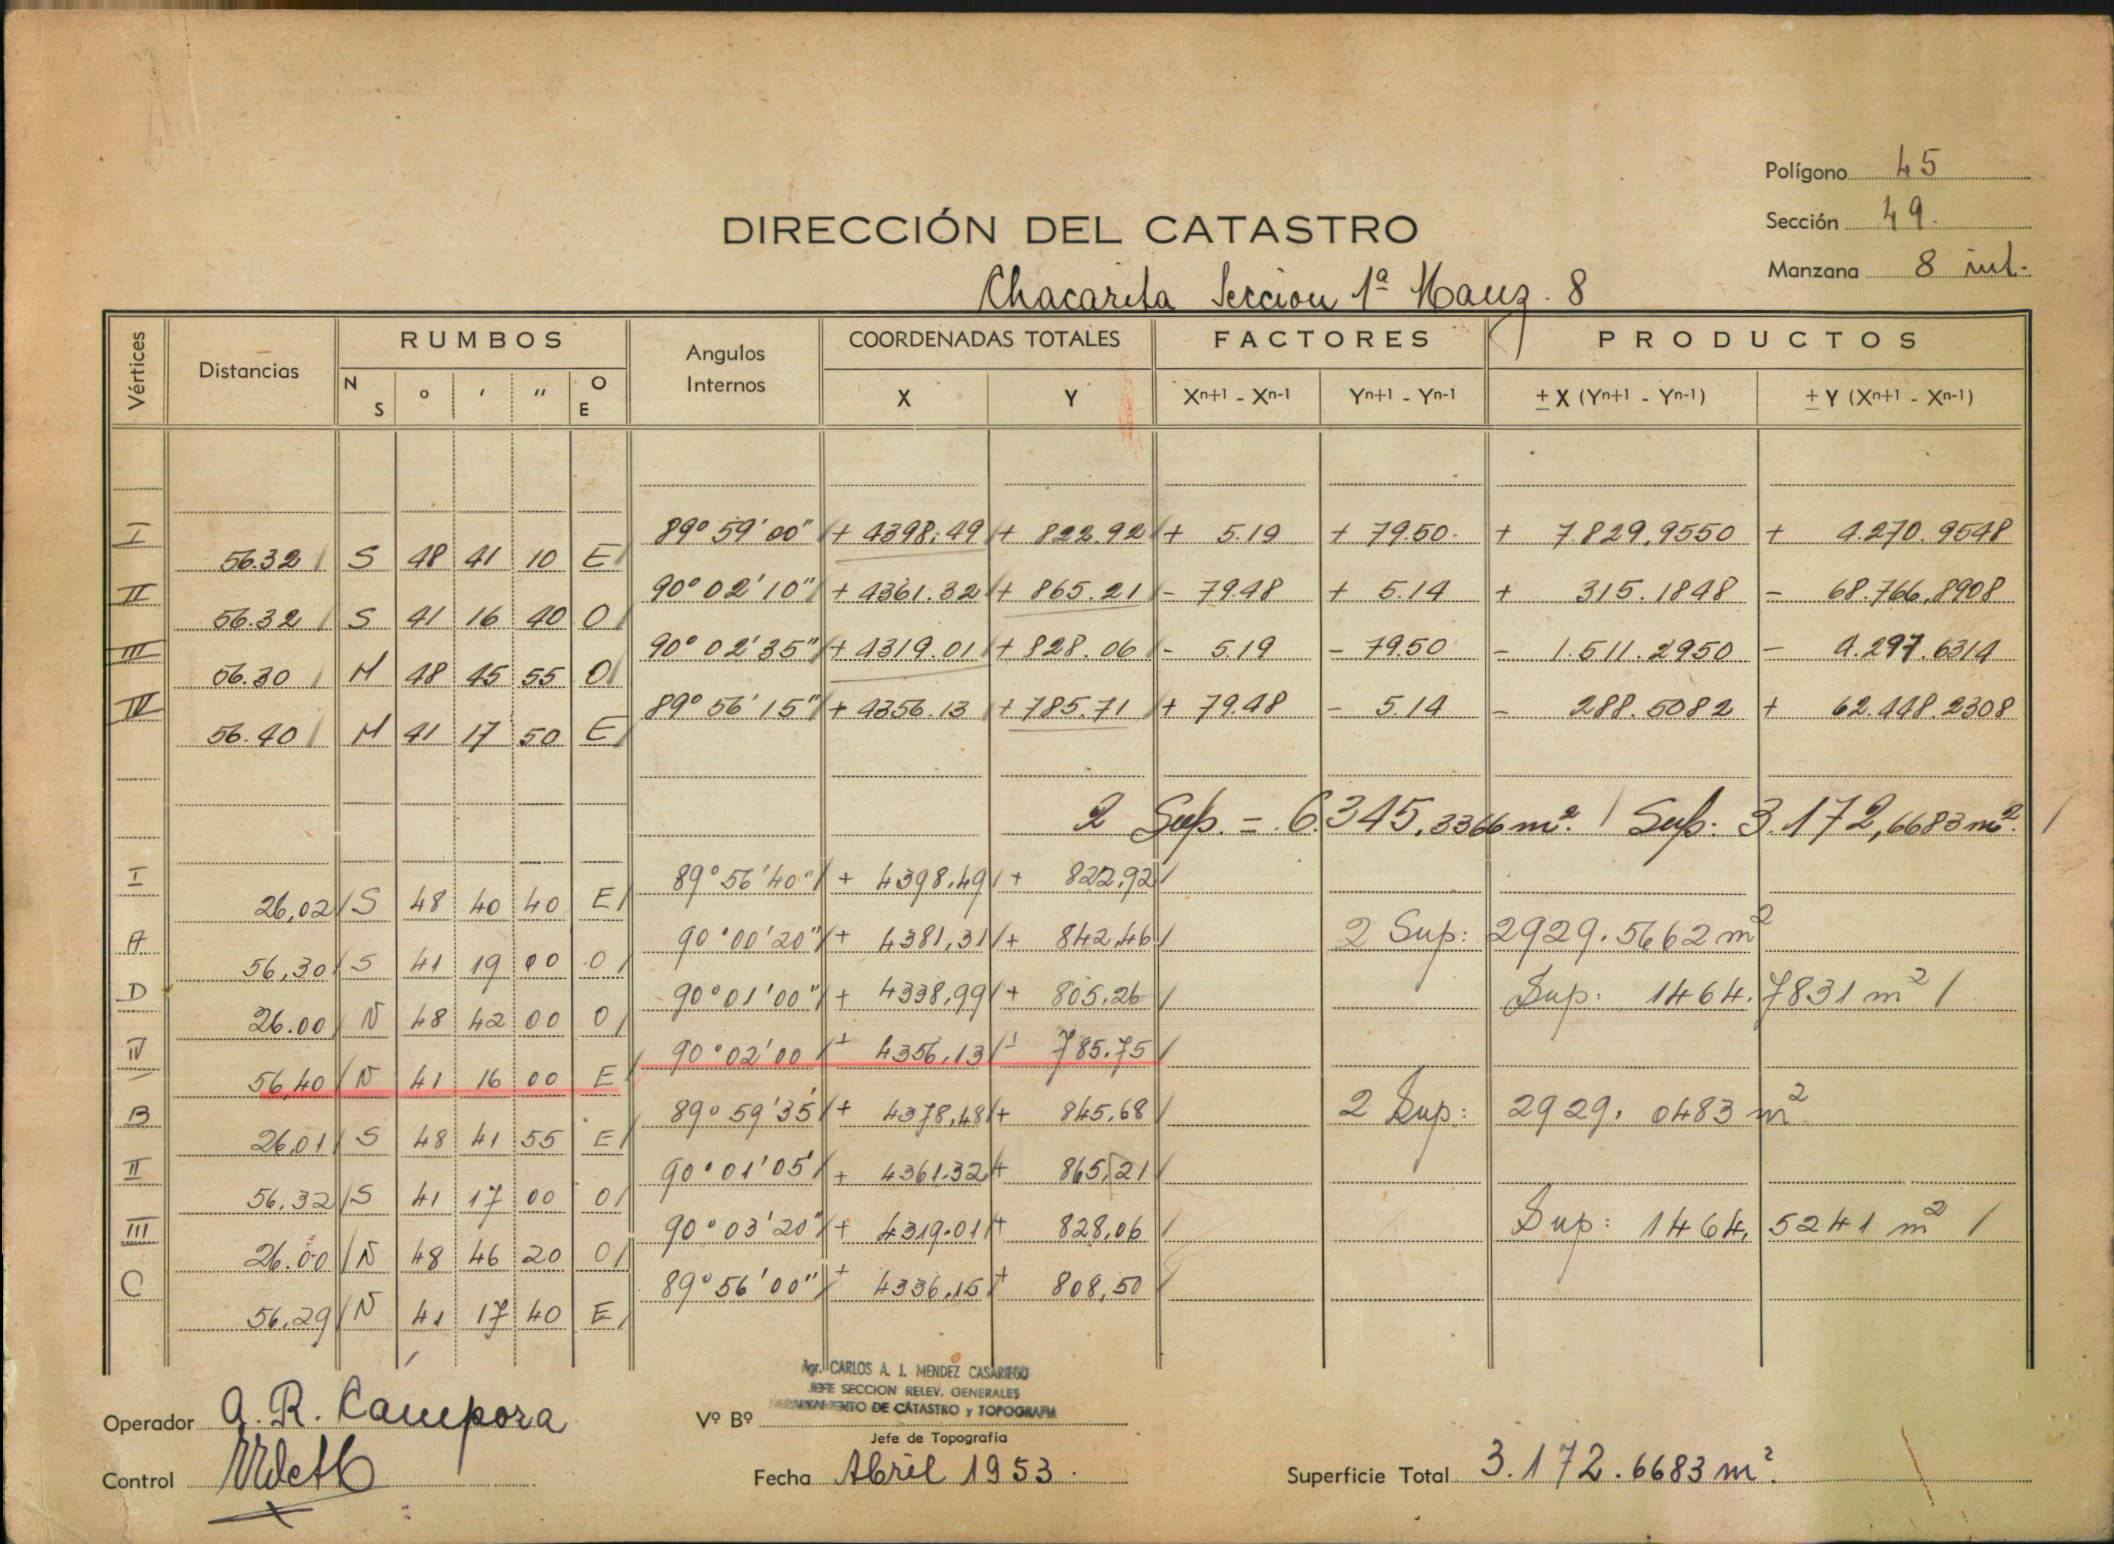 Polígono 45
DIRECCIÓN DEL CATASTRO
Sección 49.
Manzana 8 int.
Chacarita Seccion 1ª Manz. 8
Vértices Distancias RUMBOS Angulos Internos COORDENADAS TOTALES FACTORES PRODUCTOS
N S ° ' " O E X Y Xn+1 - Xn-1 Yn+1 - Yn-1 ± X (Yn+1 - Yn-1) ± Y (Xn+1 - Xn-1)
I 89° 59' 00" + 4398.49 + 822.92 + 5.19 + 79.50 + 7.829.9550 + 4.270.9548
56.32 S 48 41 10 E
II 90° 02' 10" + 4361.32 + 865.21 - 79.48 + 5.14 + 315.1848 - 68.766.8908
56.32 S 41 16 40 O
III 90° 02' 35" + 4319.01 + 828.06 - 5.19 - 79.50 - 1.511.2950 - 4.297.6314
56.30 N 48 45 55 O
IV 89° 56' 15" + 4356.13 + 785.71 + 79.48 - 5.14 - 288.5082 + 62.448.2308
56.40 N 41 17 50 E
2 Sup. = 6.345,3366 m². Sup: 3.172,6683 m².
I 89° 56' 40" + 4398,49 + 822,92
26,02 S 48 40 40 E
A 90° 00' 20" + 4381,31 + 842,46 2 Sup: 2929.5662 m²
56,30 S 41 19 00 O
D 90° 01' 00" + 4338,99 + 805,26 Sup: 1464.7831 m²
26.00 N 48 42 00 O
IV 90° 02' 00 + 4356,13 + 785.75
56,40 N 41 16 00 E
B 89° 59' 35' + 4378,48 + 845,68 2 Sup: 2929. 0483 m²
26,01 S 48 41 55 E
II 90° 01' 05' + 4361.32 + 865,21
56,32 S 41 17 00 O
III 90° 03' 20" + 4319.01 + 828,06 Sup: 1464, 5241 m²
26.00 N 48 46 20 O
C 89° 56' 00" + 4336,15 + 808,50
56,29 N 41 17 40 E
Agr. CARLOS A. J. MENDEZ CASARIEGO
JEFE SECCION RELEV. GENERALES
DEPARTAMENTO DE CATASTRO y TOPOGRAFIA
Operador A. R. Campora Vº Bº
Jefe de Topografía
Control Fecha Abril 1953. Superficie Total 3.172.6683 m².